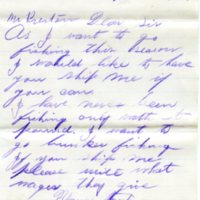 Mr Preston Dear Sir
As I want to go
fishing this season
I would like to have
you ship me if
you can
I have never been
fishing only with
pound. I want to
go bunker fishing
if you ship me
please write what
wages they give